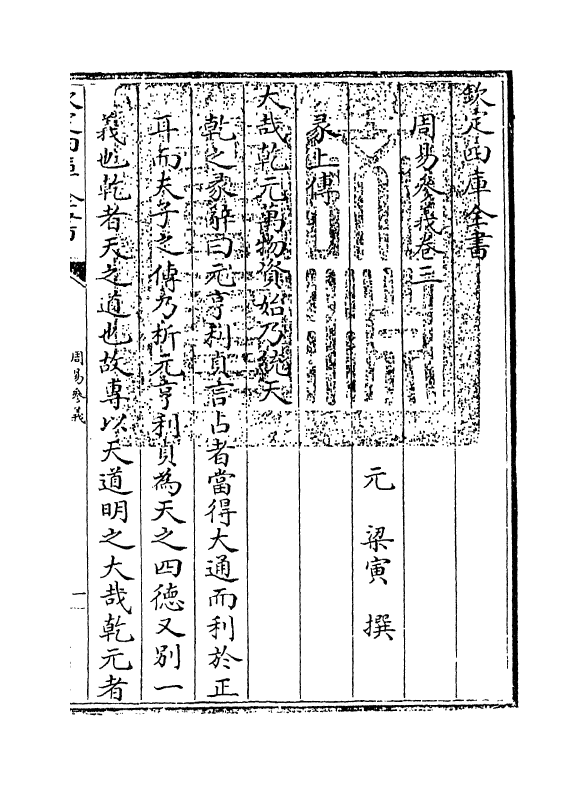 欽定四庫全書
周易參義卷三
元 梁寅 撰
彖上傳
大哉乾元萬物資始乃統天
乾之彖辭曰元亨利貞言占者當得大通而利於正
耳而夫子之傳乃析元亨利貞為天之四德又別一
義也乾者天之道也故專以天道明之大哉乾元者
欽定四庫全書
周易參義
一